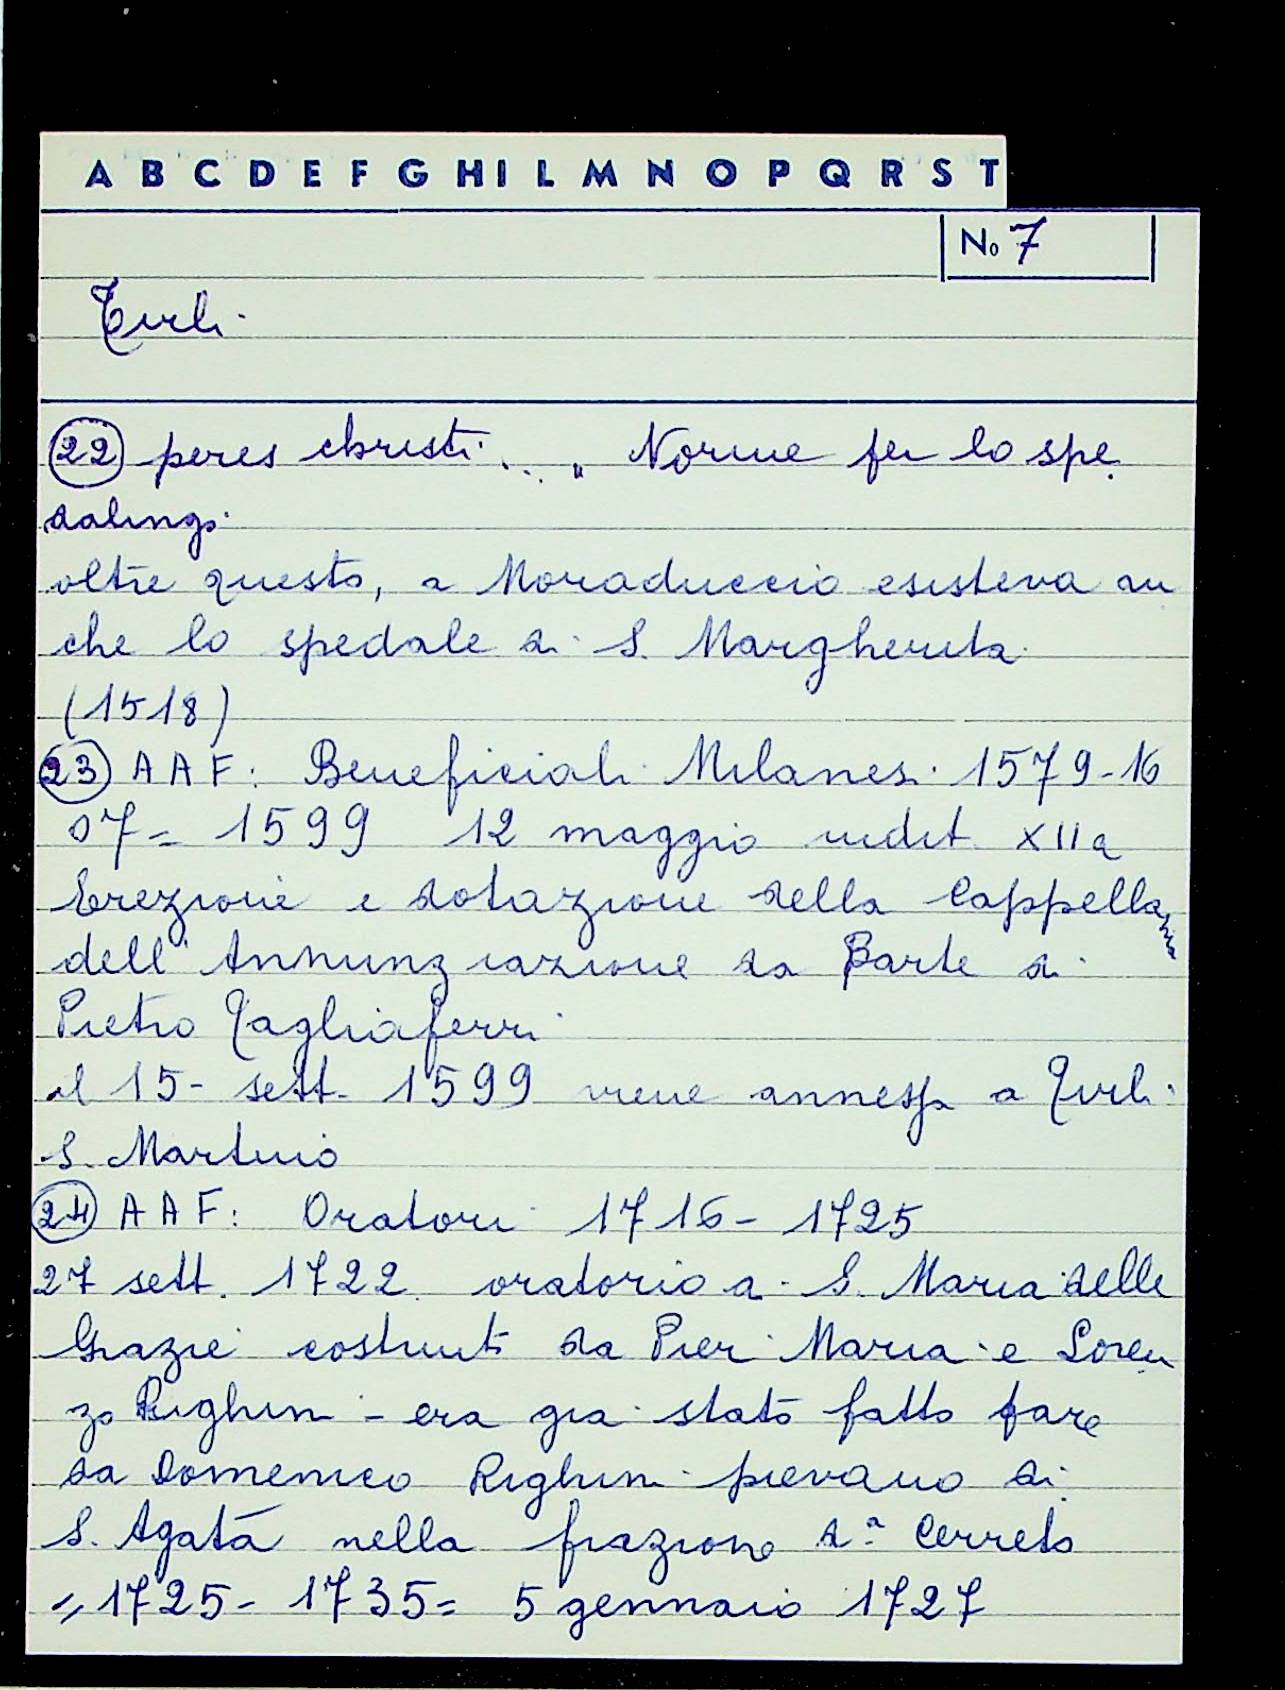 A B C D E F G H I L M N O P Q R S T
No 7
Tirli
22 peres christi... " Norme per lo spe
dalingo
oltre questo, a Moraduccio esisteva an
che lo spedale di S. Margherita
(1518)
23 AAF: Beneficiali Milanesi 1579-16
07 = 1599 12 maggio indit. XIIa
Erezione e dotazione della Cappellania
dell'Annunziazione da Parte di
Pietro Tagliaferri
il 15 - sett. 1599 viene annessa a Tirli
S. Martino
24 AAF: Oratori 1716 - 1725
27 sett. 1722 oratorio di S. Maria delle
Grazie costruito da Pier Maria e Loren
zo Righini - era gia stato fatto fare
da Domenico Righini pievano di
S. Agata nella frazione di Cerreto
= 1725 - 1735 = 5 gennaio 1727